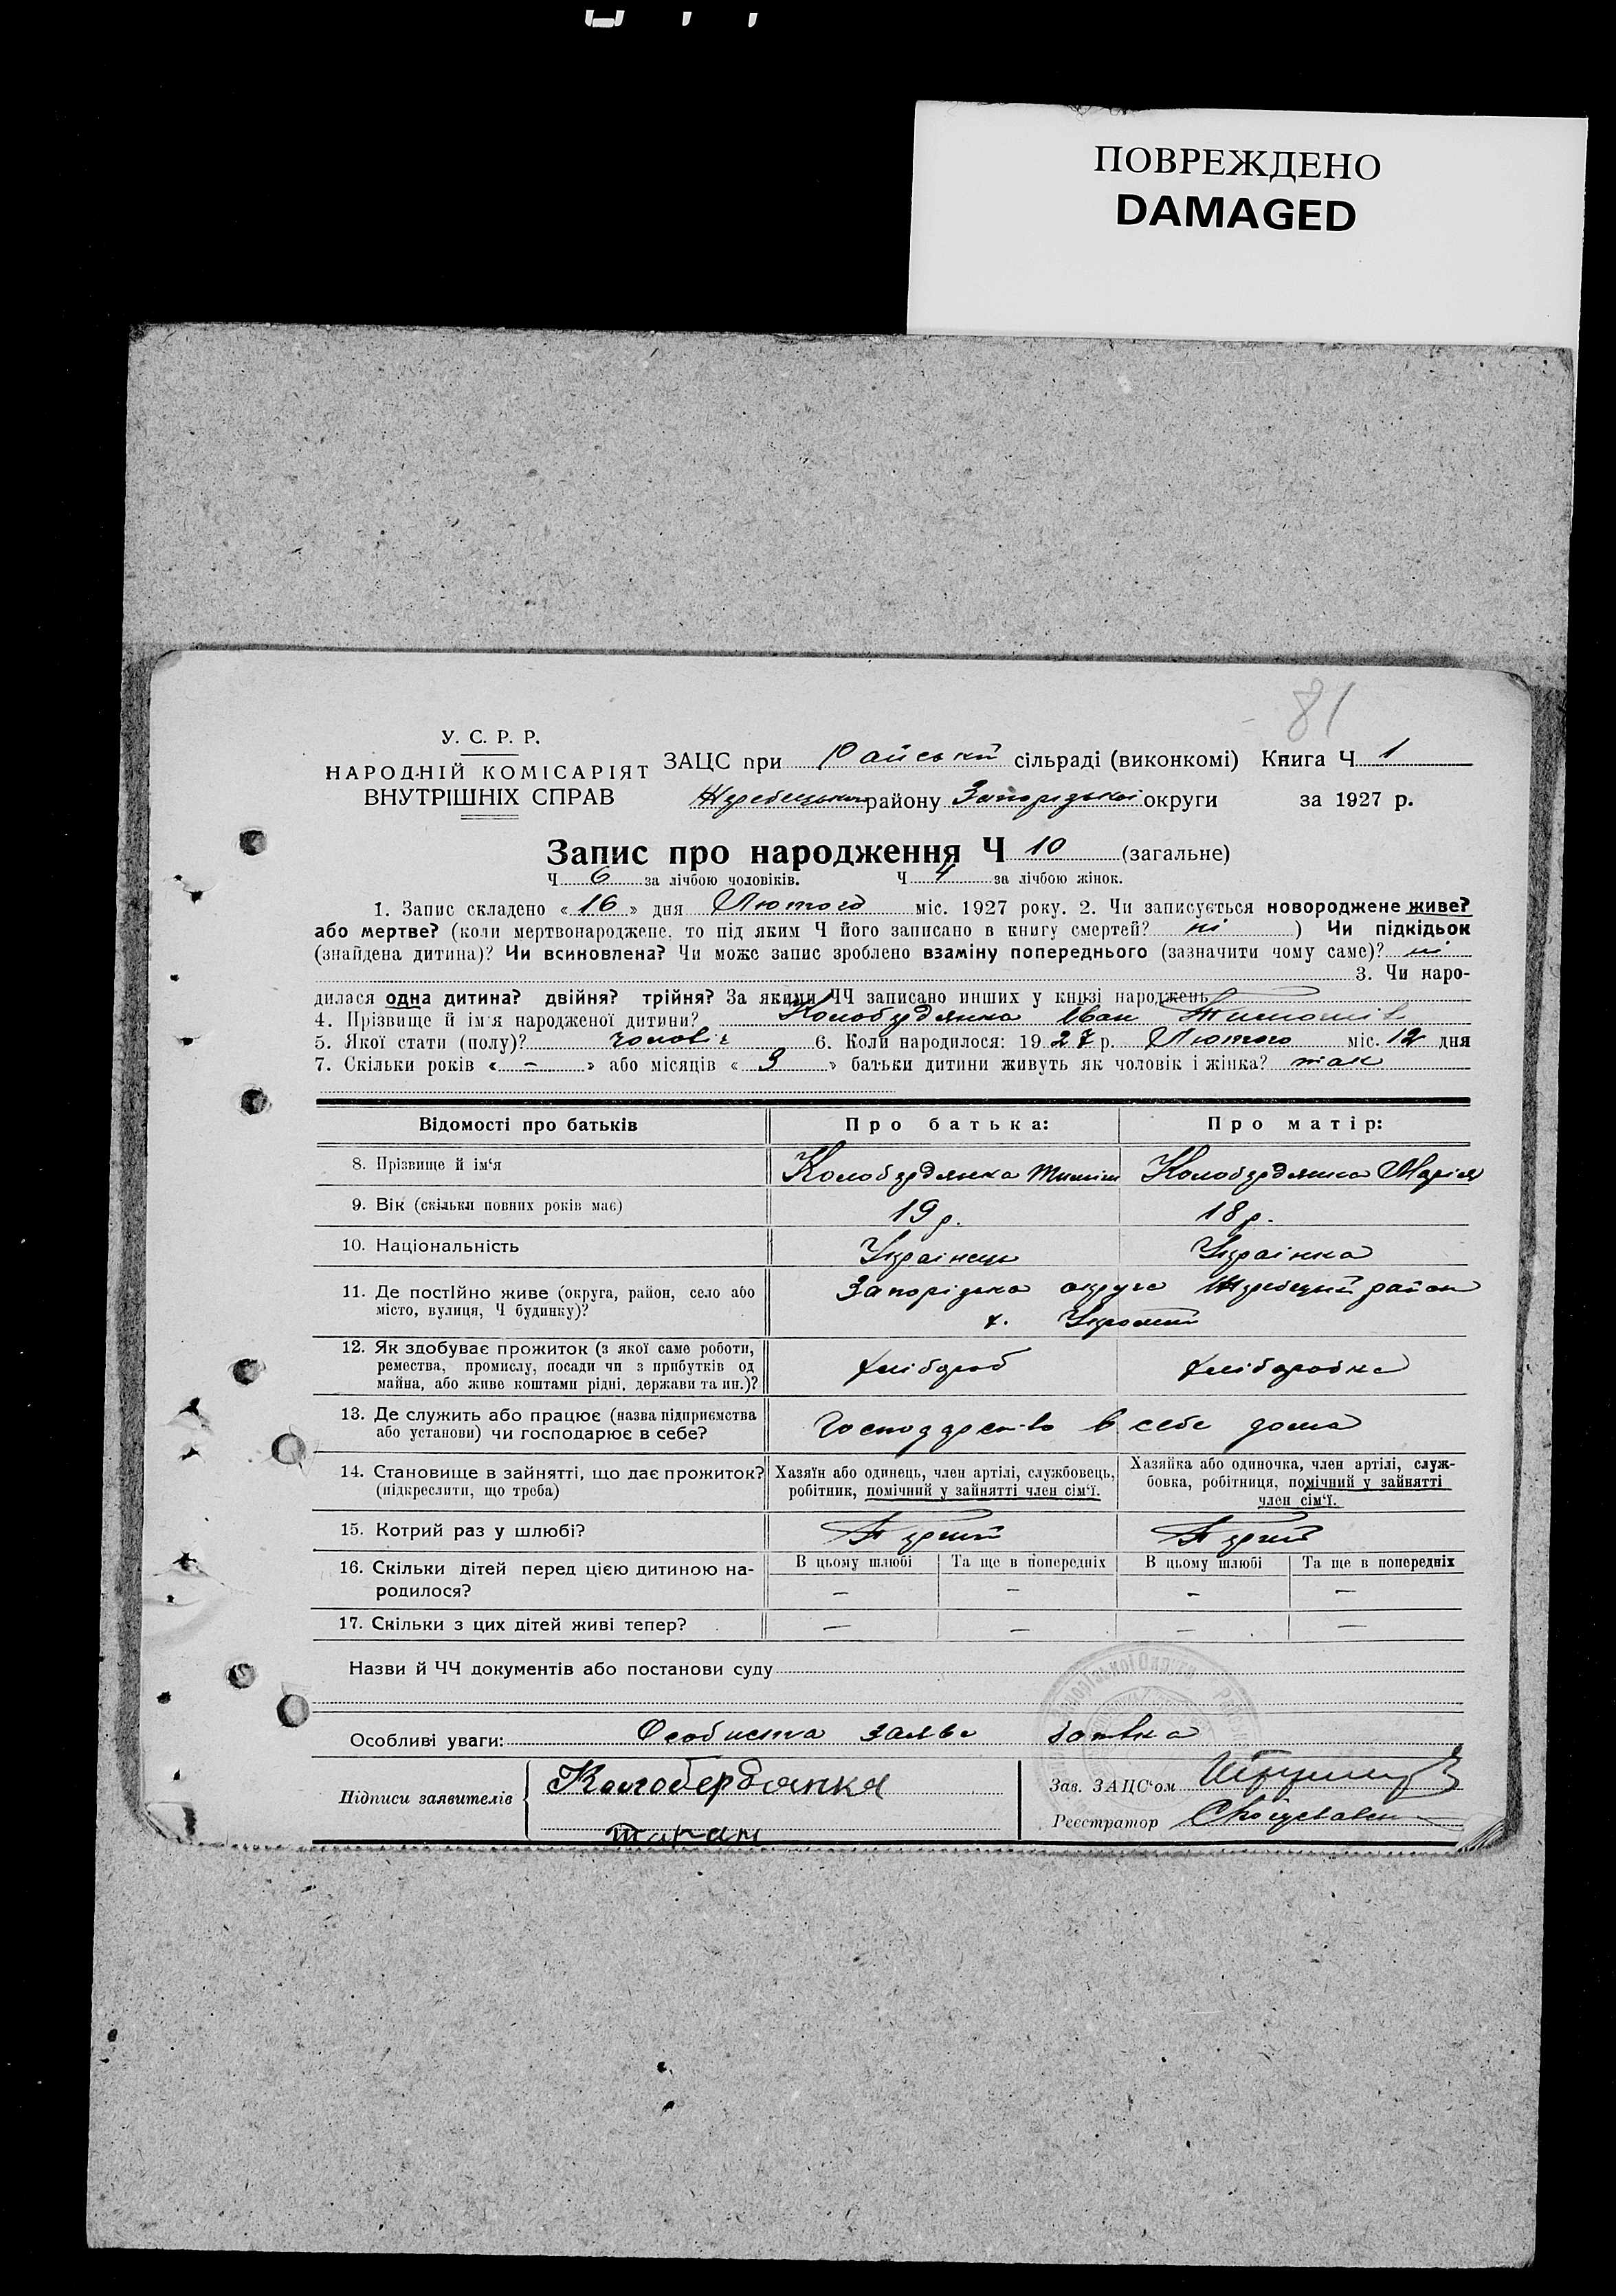 ПОВРЕЖДЕНО
DAMAGED
81
У. С. Р. Р.
НАРОДНІЙ КОМІСАРІЯТ
ВНУТРІШНІХ СПРАВ
ЗАЦС при Райській сільраді (виконкомі) Книга Ч 1
району Запорізької округи за 1927 р.
Запис про народження Ч 10 (загальне)
Ч 6 за лічбою чоловіків. Ч 4 за лічбою жінок.
1. Запис складено « 16 » дня Лютого міс. 1927 року. 2. Чи записується новороджене живе?
або мертве? (коли мертвонароджене, то під яким Ч його записано в книгу смертей? ні ) Чи підкідьок
(знайдена дитина)? Чи всиновлена? Чи може запис зроблено взаміну попереднього (зазначити чому саме)? ні
3. Чи наро-
дилася одна дитина? двійня? трійня? За якими ЧЧ записано инших у книзі народжень
4. Прізвище й ім'я народженої дитини? Колобердянка Іван Тимошів
5. Якої стати (полу)? чоловіч 6. Коли народилося: 1927 р. Лютого міс. 12 дня
7. Скільки років « - » або місяців « 9 » батьки дитини живуть як чоловік і жінка? так
Відомості про батьків Про батька: Про матір:
8. Прізвище й ім'я Колобердянка Тиміш Колобердянка Марія
9. Вік (скільки повних років має) 19 р. 18 р.
10. Національність Українець Українка
11. Де постійно живе (округа, район, село або
місто, вулиця, Ч будинку)? Запорізька округа Жеребецький район
х.
12. Як здобуває прожиток (з якої саме роботи,
ремества, промислу, посади чи з прибутків од
майна, або живе коштами рідні, держави та ин.)? хлібороб хліборобка
13. Де служить або працює (назва підприємства
або установи) чи господарює в себе? Господарство в себе дома
14. Становище в зайнятті, що дає прожиток?
(підкреслити, що треба)
Хазяїн або одинець, член артілі, службовець,
робітник, помічний у зайнятті член сім'ї.
Хазяйка або одиночка, член артілі, служ-
бовка, робітниця, помічний у зайнятті
член сім'ї.
15. Котрий раз у шлюбі? Перший Перший
16. Скільки дітей перед цією дитиною на-
родилося?
В цьому шлюбі Та ще в попередніх В цьому шлюбі Та ще в попередніх
– – – –
17. Скільки з цих дітей живі тепер? – – – –
Назви й ЧЧ документів або постанови суду
Особливі уваги: Особиста заява батька
Підписи заявителів Колобердянка
Зав. ЗАЦС'ом
Реєстратор